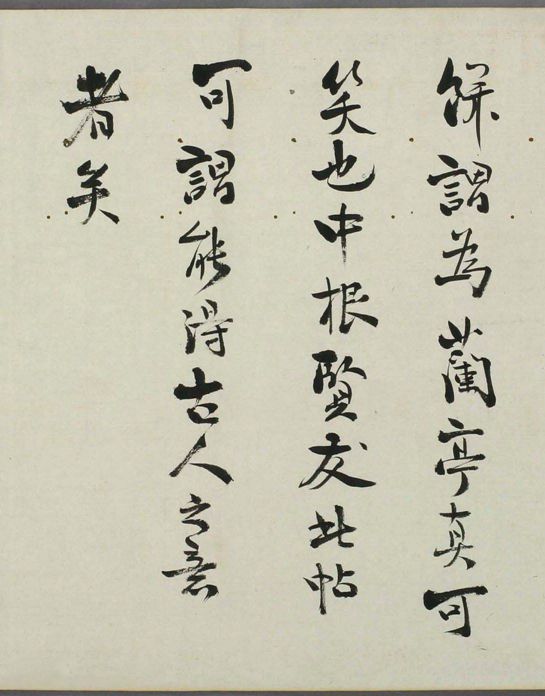 餅謂為蘭亭真可
笑也中根賢友此帖
可謂能得古人之意
者矣